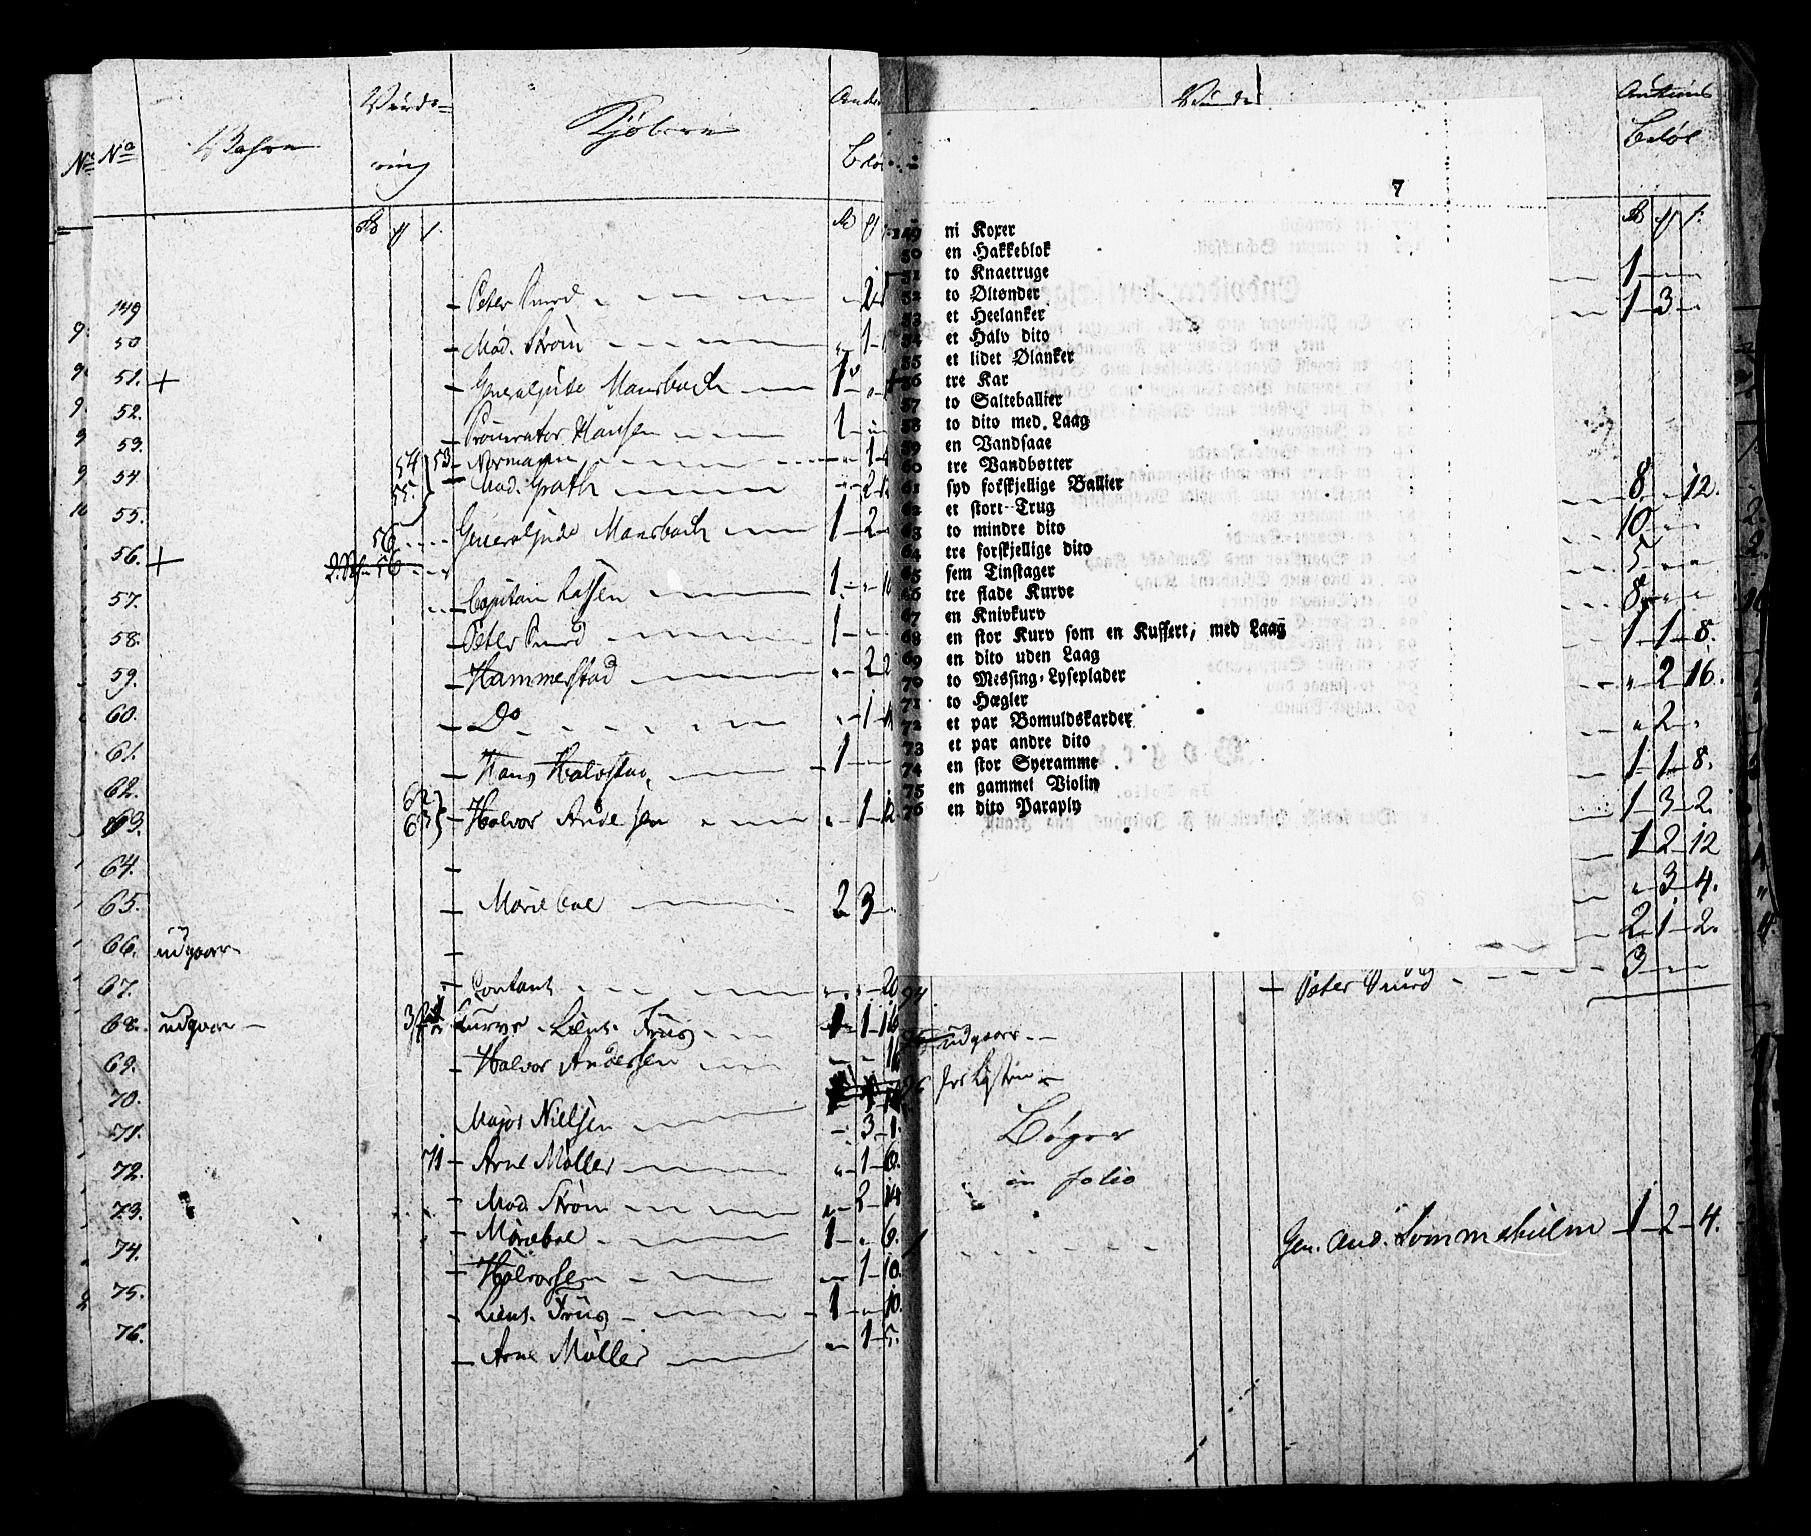 No Vahre Vurde= ring Kjøbere
149 Peter Smed 2
50 Mad. Strøm 1
51. + Generalinde Mansbach 1
52. Procurator Hansen 1
53. 53 Normann 1
54 54 55. Mad. Groth 2
55. 56 Generalinde Mansbach 1 2
56. +
57. Capitain Lassen 1
58. Peter Smed 1
59. Hammerstad 2
60. Do 1
61. Hans Halvstad 1
62. 62
63. 63 Halvor Andersen 1 12
64.
65. Mariboe 2 3
66. udgaar
67. Contant 20
68. udgaar Kurve Lieut. Friis 1 1 16
69. Halvor Andersen 16
70. Major Nielsen 3 1
71. 71 Arne Møller 1 6
72. Mad. Strøm 2 14
73. Mariboe 1 6.
74. Halvorsen 1 10.
75. Lieut. Friis 1 10.
76. Arne Møller 1 5.
Vurde Auctions Beløb
7
149 ni Koxer
50 en Hakkeblok
51 to Knaetruge
52 to Øltønder
53 et Heelanker
54 et Halv dito
55 et lidet Ølanker
56 tre Kar
57 to Salteballier
58 to dito med Laag
59 en Vandsaae
60 tre Vandbøtter
61 syv forskjellige Ballier
62 et stort Trug
63 to mindre dito
64 tre forskjellige dito
65 fem Tinstager
66 tre flade Kurve
67 en Knivkurv
68 en stor Kurv som en Kuffert, med Laag
69 en dito uden Laag
70 to Messing-Lyseplader
71 to Hægler
72 et par Bomuldskarder
73 et par andre dito
74 en stor Syeramme
75 en gammel Violin
76 en dito Paraply
1
1 3
8 12.
10
5
8
1 1 8.
2 16.
2
1 1 8.
1 3 2.
1 2 12
3 4.
2 1 2.
94 Peter Smed 3
95 udgaar
96
Bøger
in folio
1 1 2 4.